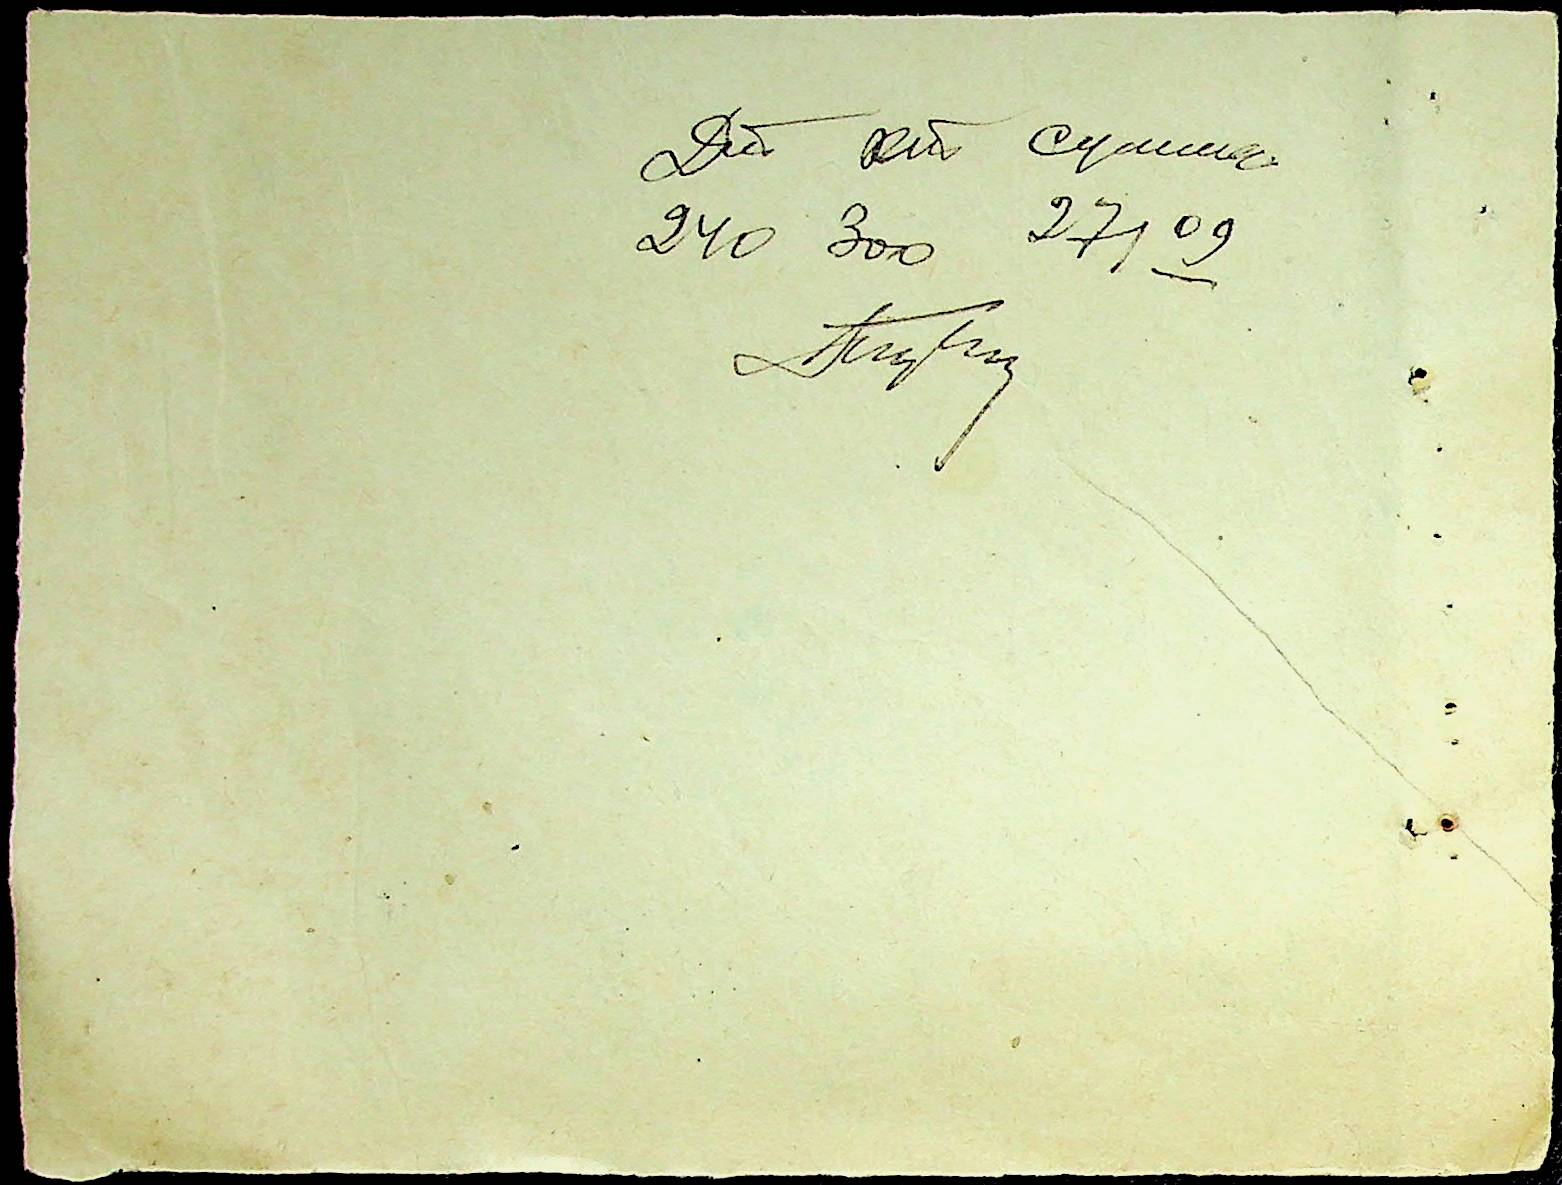 Дт Кт сумма
240 300 271 09